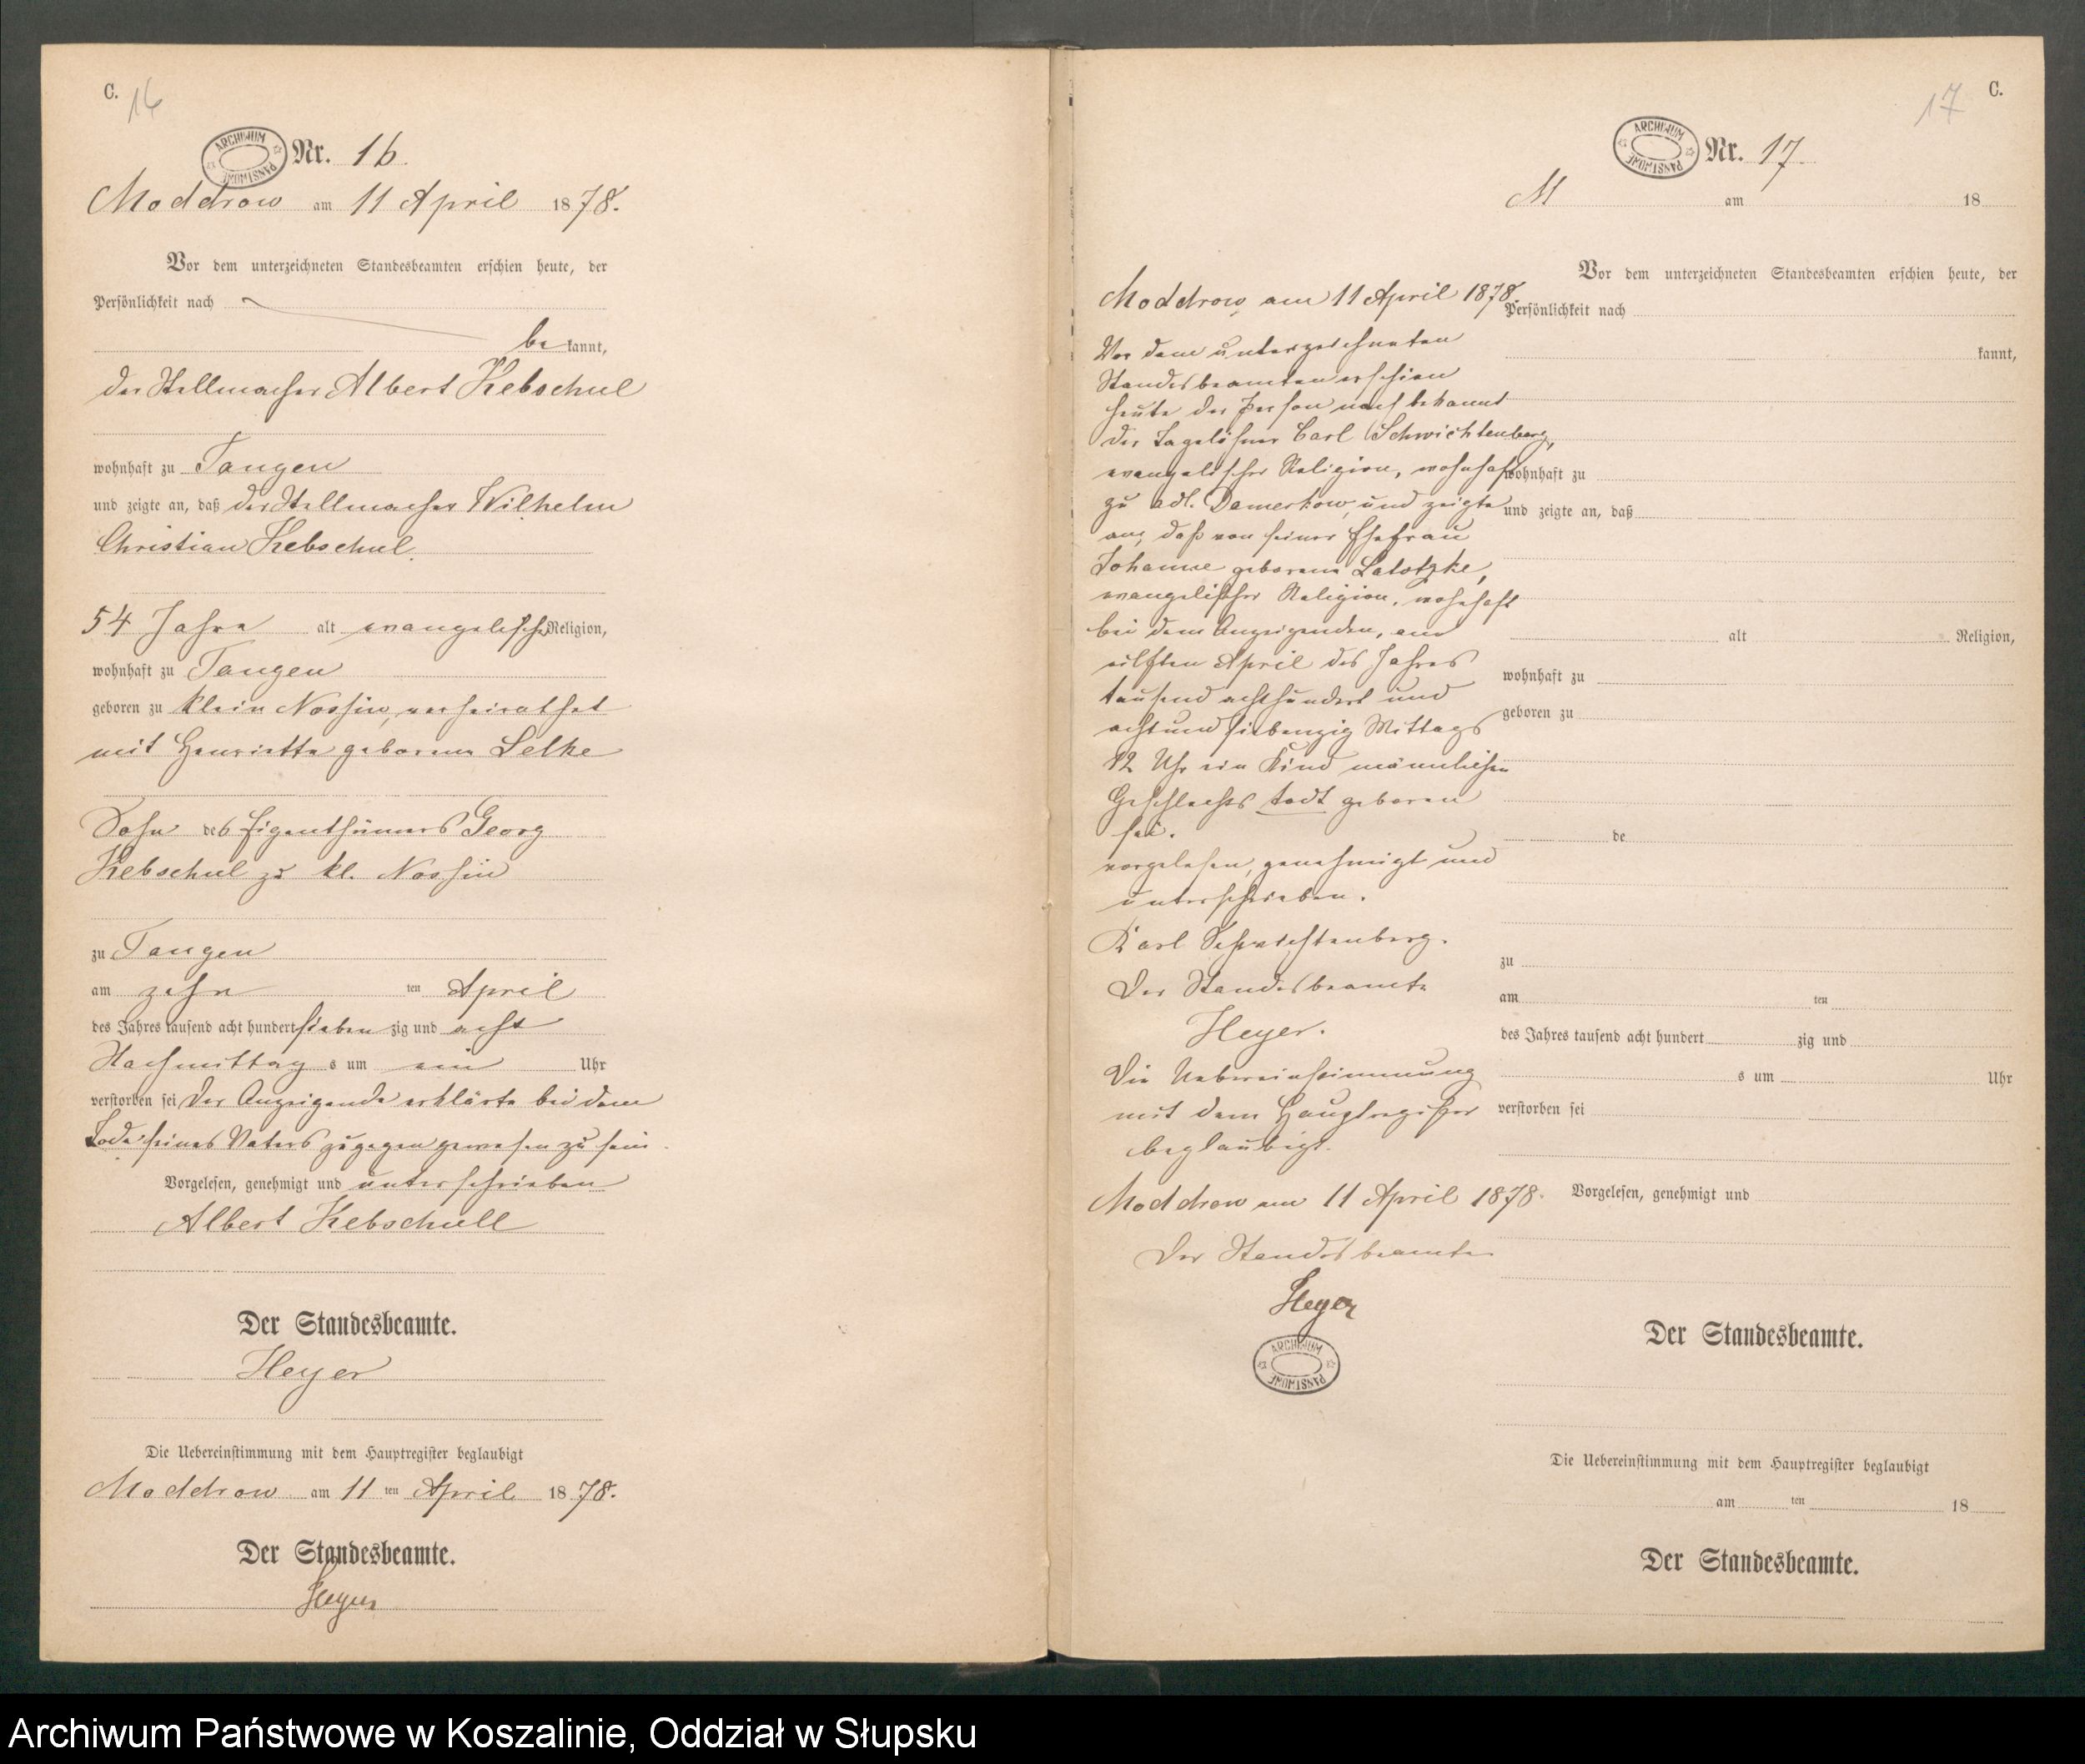 C.
16
ARCHIWUM PAŃSTWOWE
Nr. 16.
Moddrow am 11 April 1878.
Vor dem unterzeichneten Standesbeamten erschien heute, der
Persönlichkeit nach
be kannt,
der Stellmacher Albert Kebschul
wohnhaft zu Tangen
und zeigte an, daß der Stellmacher Wilhelm
Christian Kebschul.
54 Jahre alt evangelischer Religion,
wohnhaft zu Tangen
geboren zu klein Nossin, verheirathet
mit Henriette geborene Selke
Sohn des Eigenthümers Georg
Kebschul zu kl. Nossin
zu Tangen
am zehn ten April
des Jahres tausend acht hundert sieben zig und acht
Nachmittag s um ein Uhr
verstorben sei Der Anzeigende erklärte bei dem
Tode seines Vaters zugegen gewesen zu sein.
Vorgelesen, genehmigt und unterschrieben
Albert Kebschull
Der Standesbeamte.
Heyer
Die Uebereinstimmung mit dem Hauptregister beglaubigt
Moddrow am 11 ten April 1878.
Der Standesbeamte.
Heyer
17
C.
ARCHIWUM PAŃSTWOWE
Nr. 17.
M am 18
Vor dem unterzeichneten Standesbeamten erschien heute, der
Persönlichkeit nach
kannt,
wohnhaft zu
und zeigte an, daß
alt Religion,
wohnhaft zu
geboren zu
de
zu
am ten
des Jahres tausend acht hundert zig und
s um Uhr
verstorben sei
Vorgelesen, genehmigt und
Der Standesbeamte.
Die Uebereinstimmung mit dem Hauptregister beglaubigt
am ten 18
Der Standesbeamte.
Moddrow, am 11 April 1878.
Vor dem unterzeichneten
Standesbeamten erschien
heute der Person nach bekannt
der Tagelöhner Carl Schwichtenberg,
evangelischer Religion, wohnhaft
zu adl. Damerkow, und zeigte
an, daß von seiner Ehefrau
Johanne geborene Latotzke,
evangelischer Religion, wohnhaft
bei dem Anzeigenden, am
eilften April des Jahres
tausend achthundert und
achtund siebenzig Mittags
12 Uhr ein Kind männlichen
Geschlechts todt geboren
sei.
vorgelesen, genehmigt und
unterschrieben.
Karl Schwichtenberg.
Der Standesbeamte
Heyer.
Die Uebereinstimmung
mit dem Hauptregister
beglaubigt.
Moddrow am 11 April 1878.
Der Standesbeamte
Heyer
ARCHIWUM PAŃSTWOWE
Archiwum Państwowe w Koszalinie, Oddział w Słupsku